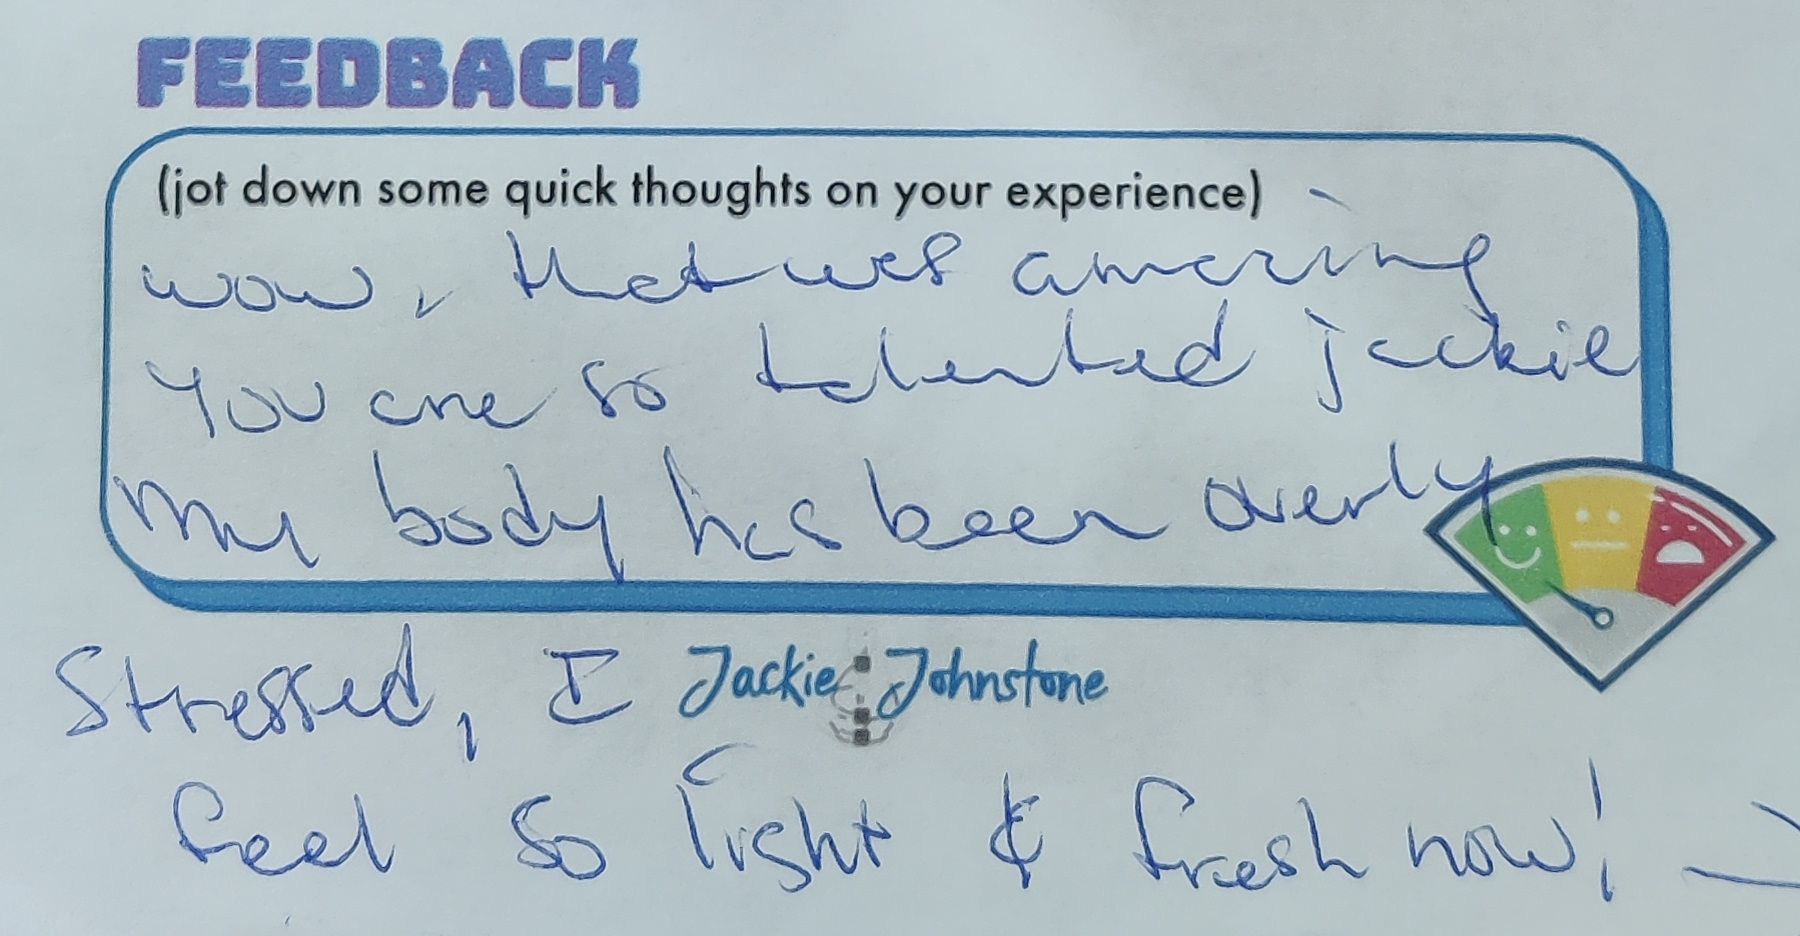 FEEDBACK
(jot down some quick thoughts on your experience)
wow, that was amazing
You are so talented jackie
My body has been overly
Stressed, I
Jackie Johnstone
feel so light & fresh now!